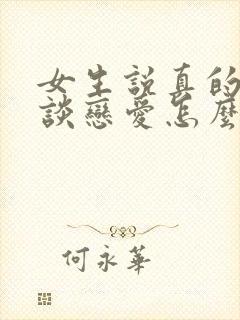 女生說真的
談戀愛怎麼
何永華